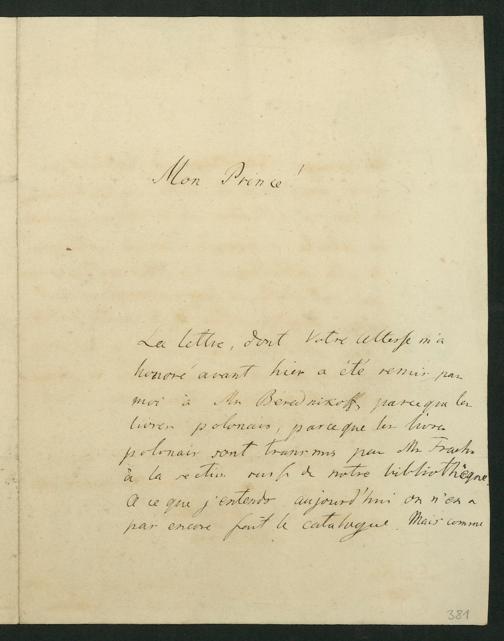 Mon Prince!
La lettre, dont Votre Altesse m'a
honoré avant hier a été remis par
moi à Mr Bérednikoff, parceque les
livres polonais, parceque les livres
polonais sont transmis par Mr Fraehn
à la section russe de notre bibliothèque.
A ce que j'entends aujourd'hui on n'en a
pas encore fait le catalogue. Mais comme
381